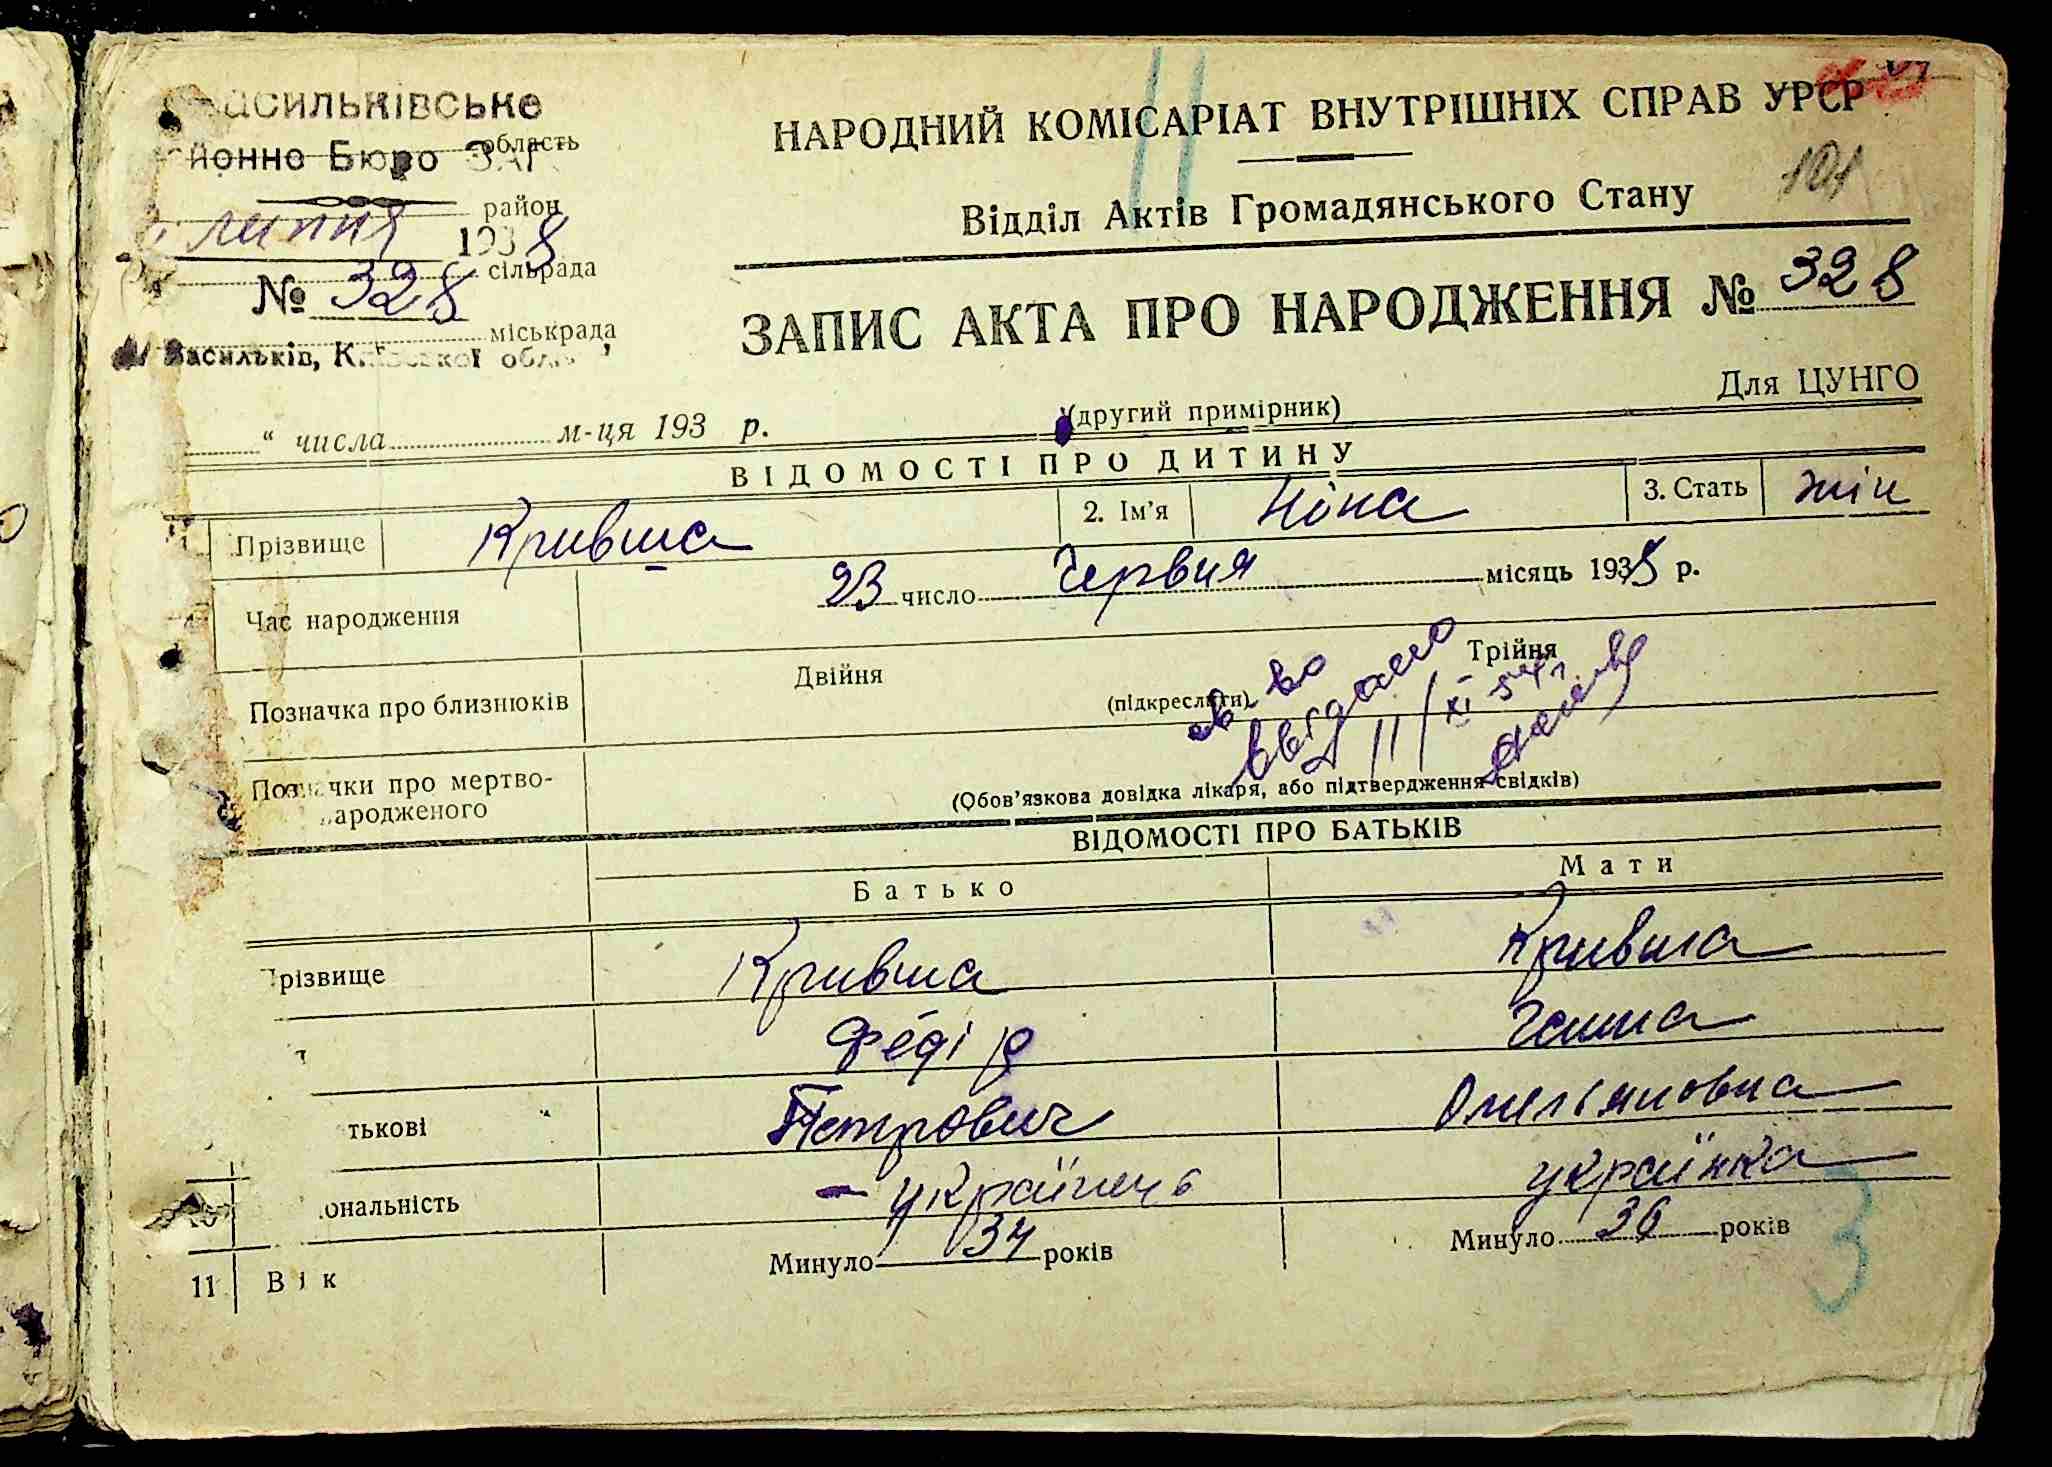 асильківське
НАРОДНИЙ КОМІСАРІАТ ВНУТРІШНІХ СПРАВ УРСР
область
йонне Бюро ЗАГ
101
Відділ Актів Громадянського Стану
район
липня 1938
сільрада
№ 328
ЗАПИС АКТА ПРО НАРОДЖЕННЯ № 328
міськрада
Васильків, Київської обл
Для ЦУНГО
(другий примірник)
“ числа м-ця 193 р.
ВІДОМОСТІ ПРО ДИТИНУ
Прізвище Кривша 2. Ім’я Ніна 3. Стать жін
Час народження 23 число Червня місяць 1938 р.
Позначка про близнюків Двійня (підкреслити) Трійня
св во
видано
11/XI 54 р.
Позначки про мертво-
ародженого (Обов’язкова довідка лікаря, або підтвердження свідків)
ВІДОМОСТІ ПРО БАТЬКІВ
Батько Мати
різвище Кривша Кривша
Федір Ганна
тькові Петрович Омельяновна
ональність українець українка
11 Вік Минуло 34 років Минуло 36 років
3